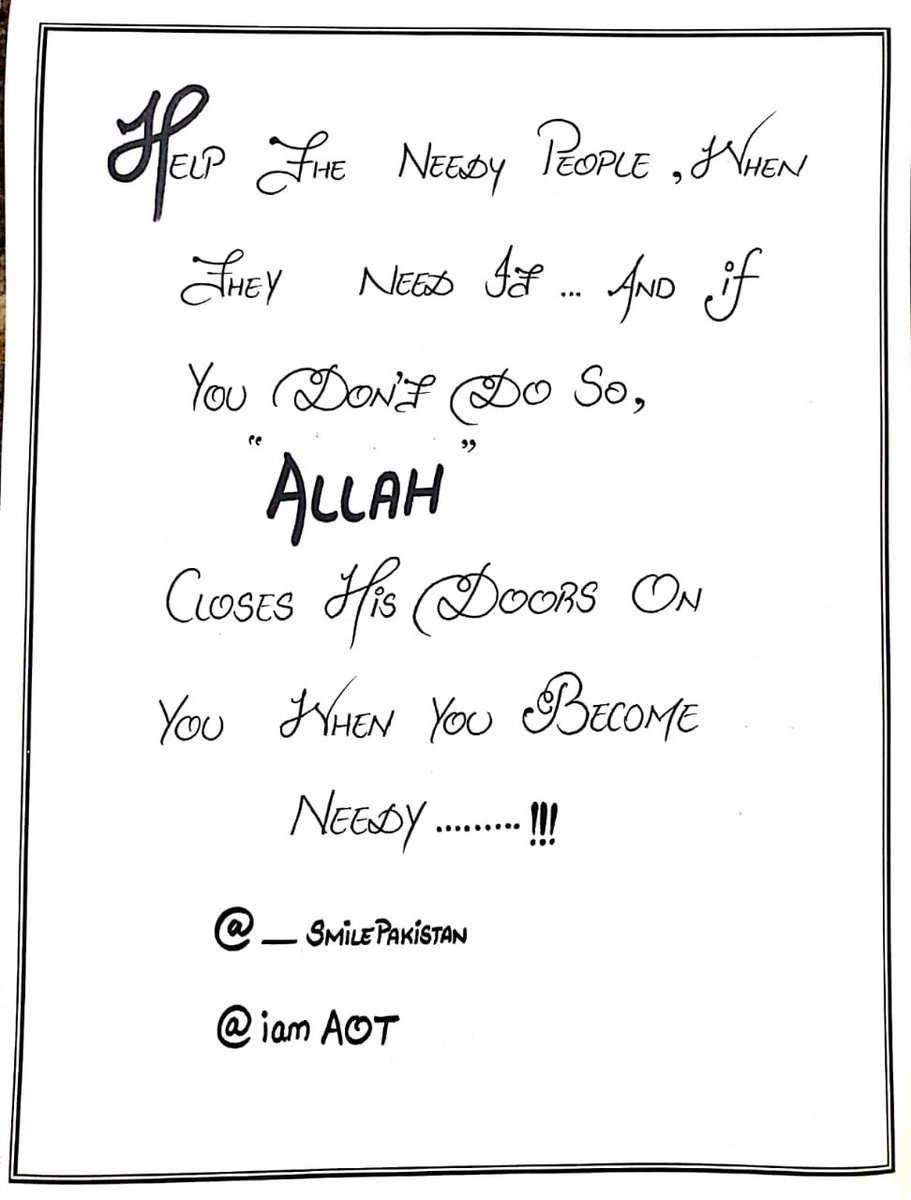 Help The Needy People, When
They Need It ... And if
You Don't Do So,
"ALLAH"
Closes His Doors On
You When You Become
Needy .........!!!
@_SmilePakistan
@iamAOT